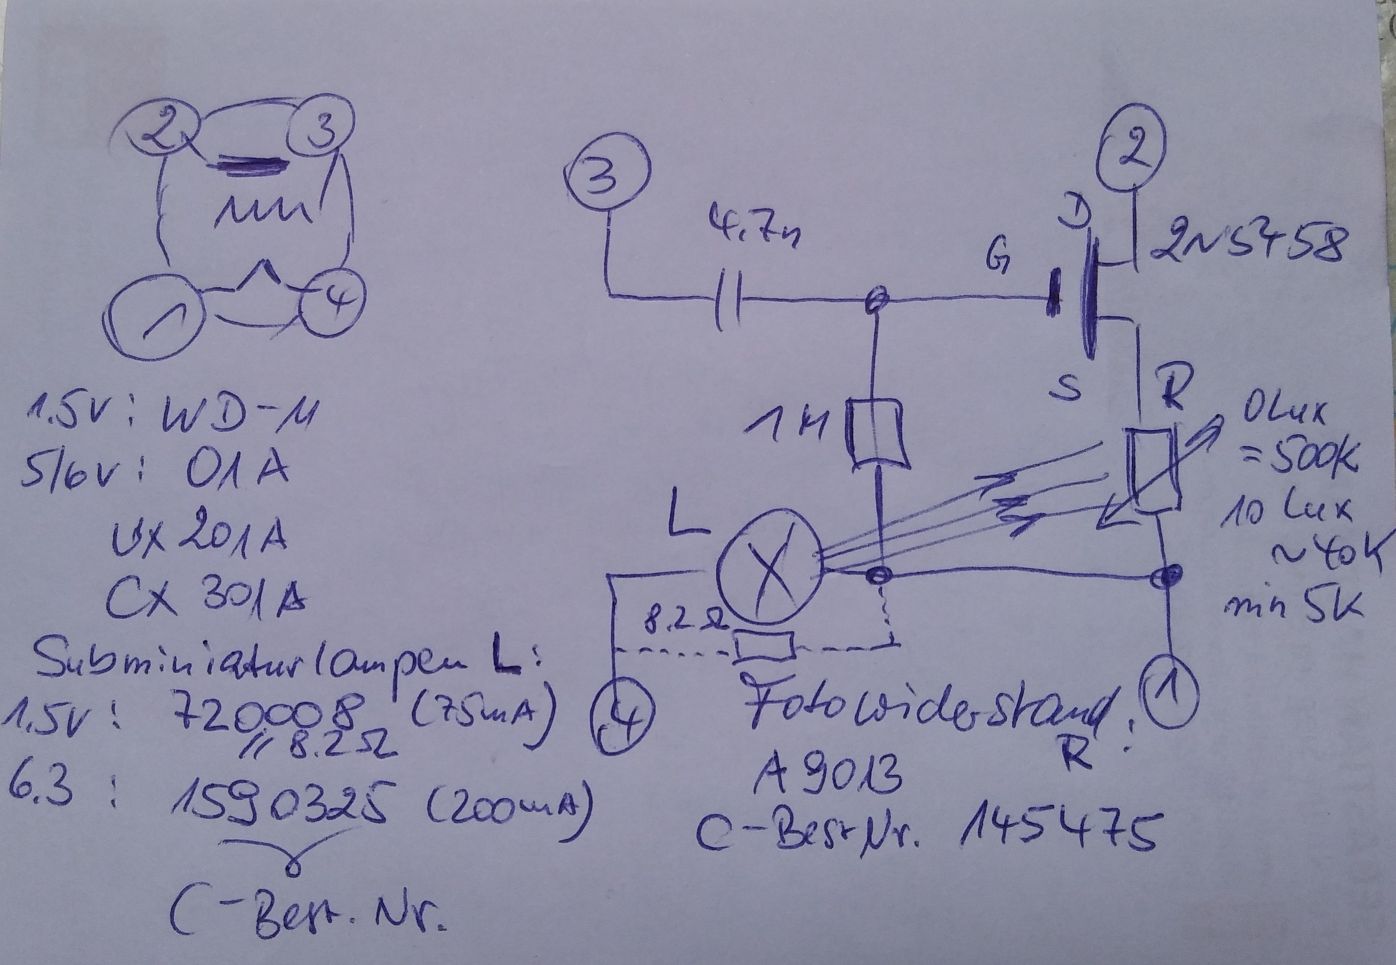 2 3
1 4
1.5V: WD-11
5/6V: 01A
UX 201A
CX 301A
Subminiaturlampen L:
1.5V: 720008 (75mA)
// 8.2Ω
6.3: 1590325 (200mA)
C-Best. Nr.
3
2
4.7n
G
D
2N5458
S
R
1M
0Lux
=500K
10 Lux
~40K
min 5K
L
8.2Ω
4
1
Fotowiderstand
R:
A9013
C-Best Nr. 145475